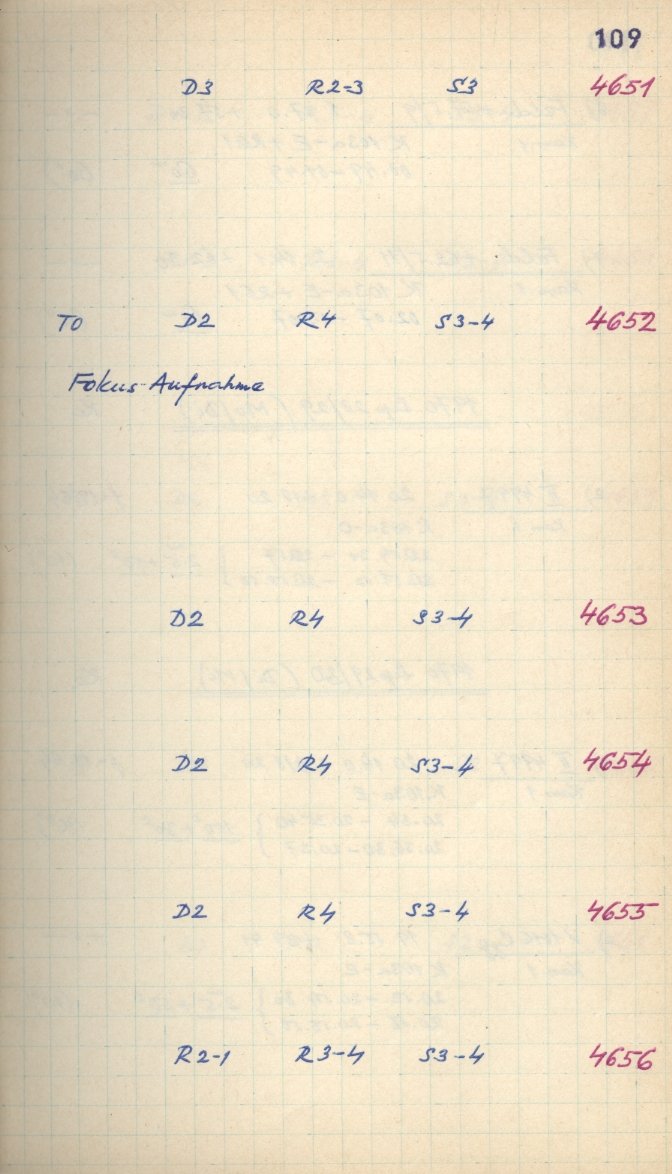 109
D3 R2-3 S3 4651
TO D2 R4 S3-4 4652
Fokus-Aufnahme
D2 R4 S3-4 4653
D2 R4 S3-4 4654
D2 R4 S3-4 4655
R2-1 R3-4 S3-4 4656